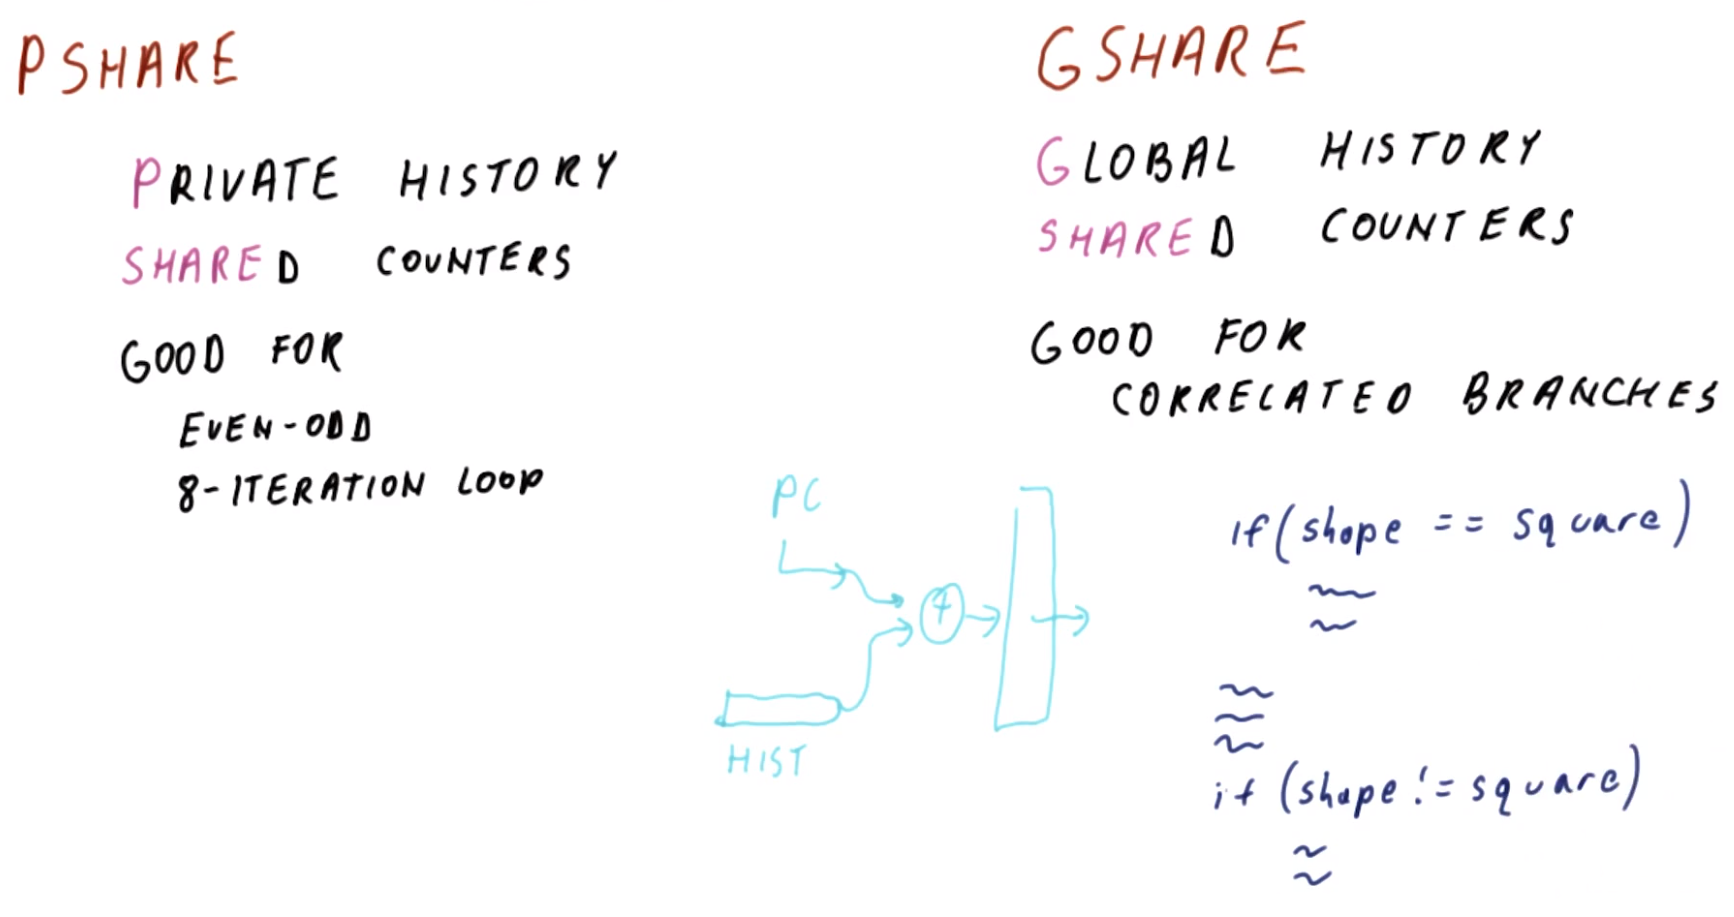 PSHARE
PRIVATE HISTORY
SHARED COUNTERS
GOOD FOR
EVEN-ODD
8-ITERATION LOOP
GSHARE
GLOBAL HISTORY
SHARED COUNTERS
GOOD FOR
CORRELATED BRANCHES
PC
+
HIST
if(shape == square)
if (shape != square)